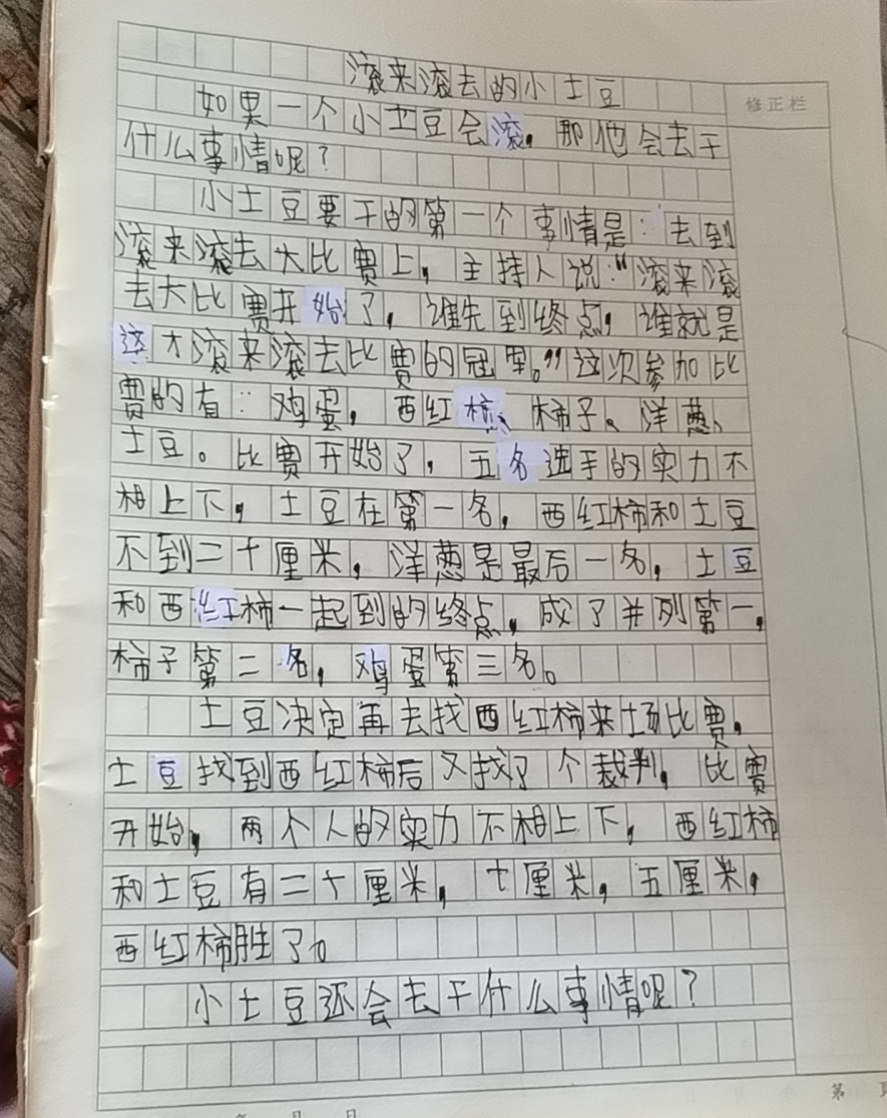 滚来滚去的小土豆
修正栏
如果一个小土豆会滚，那他会去干
什么事情呢？
小土豆要干的第一个事情是：去到
滚来滚去大比赛上，主持人说：“滚来滚
去大比赛开始了，谁先到终点，谁就是
这才滚来滚去比赛的冠军。”这次参加比
赛的有：鸡蛋，西红柿、柿子、洋葱、
土豆。比赛开始了，五名选手的实力不
相上下，土豆在第一名，西红柿和土豆
不到二十厘米，洋葱是最后一名，土豆
和西红柿一起到的终点，成了并列第一，
柿子第二名，鸡蛋第三名。
土豆决定再去找西红柿来场比赛，
土豆找到西红柿后又找了个裁判，比赛
开始，两个人的实力不相上下，西红柿
和土豆有二十厘米，七厘米，五厘米，
西红柿胜了。
小土豆还会去干什么事情呢？
第
年 月 日